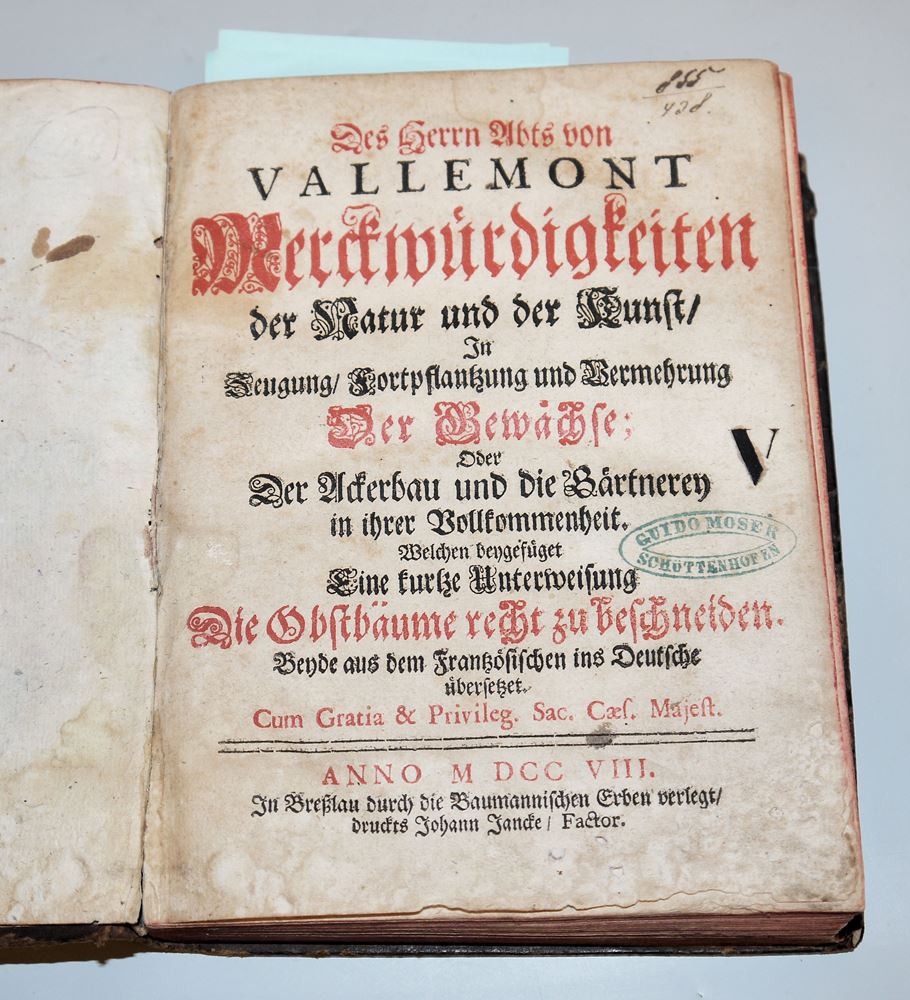 855
428.
Des Herrn Abts von
VALLEMONT
Merckwürdigkeiten
der Natur und der Kunst/
In
Zeugung/ Fortpflantzung und Vermehrung
Der Gewächse;
Oder
Der Ackerbau und die Gärtnerey
in ihrer Vollkommenheit.
Welchen beygefüget
Eine kurtze Unterweisung
Die Obstbäume recht zu beschneiden.
Beyde aus dem Frantzösischen ins Deutsche
übersetzet.
Cum Gratia & Privileg. Sac. Cæs. Majest.
ANNO M DCC VIII.
In Breßlau durch die Baumannischen Erben verlegt/
druckts Johann Jancke/ Factor.
V
GUIDO MOSER
SCHÜTTENHOFEN